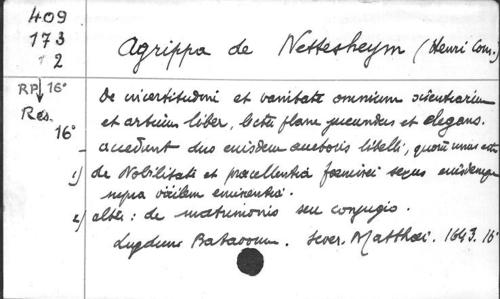 409
173
2
Agrippa de Nettesheym (Henri Corn.)
RP 16°
Rés.
16°
De incertitudini et vanitate omnium scientiarum
et artium liber, lectu plane jucundus et elegans.
_ accedunt duo eiusdem auctoris libelli, quorū unus est
1) de Nobilitate et praecellentia foeminei sexus eiusdemque
supra virilem eminentia.
2) alter : de matrimonio seu conjugio.
Lugduni Batavorum. Sever. Matthaei. 1643. 16°